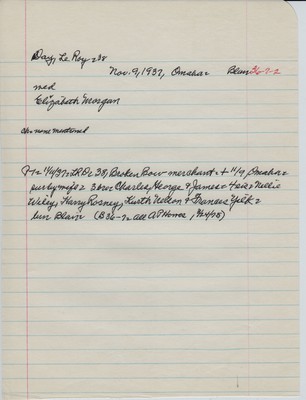 Day, Le Roy - 38
Nov. 9, 1937, Omaha Blain 36-7-2
mad
Elizabeth Morgan
ch: none mentioned
11/11/37 Broken Bow merchant + 11/9, Omaha
sur by mof 3 bros Charles, George & James 4 sis Nellie
Wiley, Harry Rosney, Keith Nelson & Frances Yelk
bur Blain (B 36-7- all at Home,